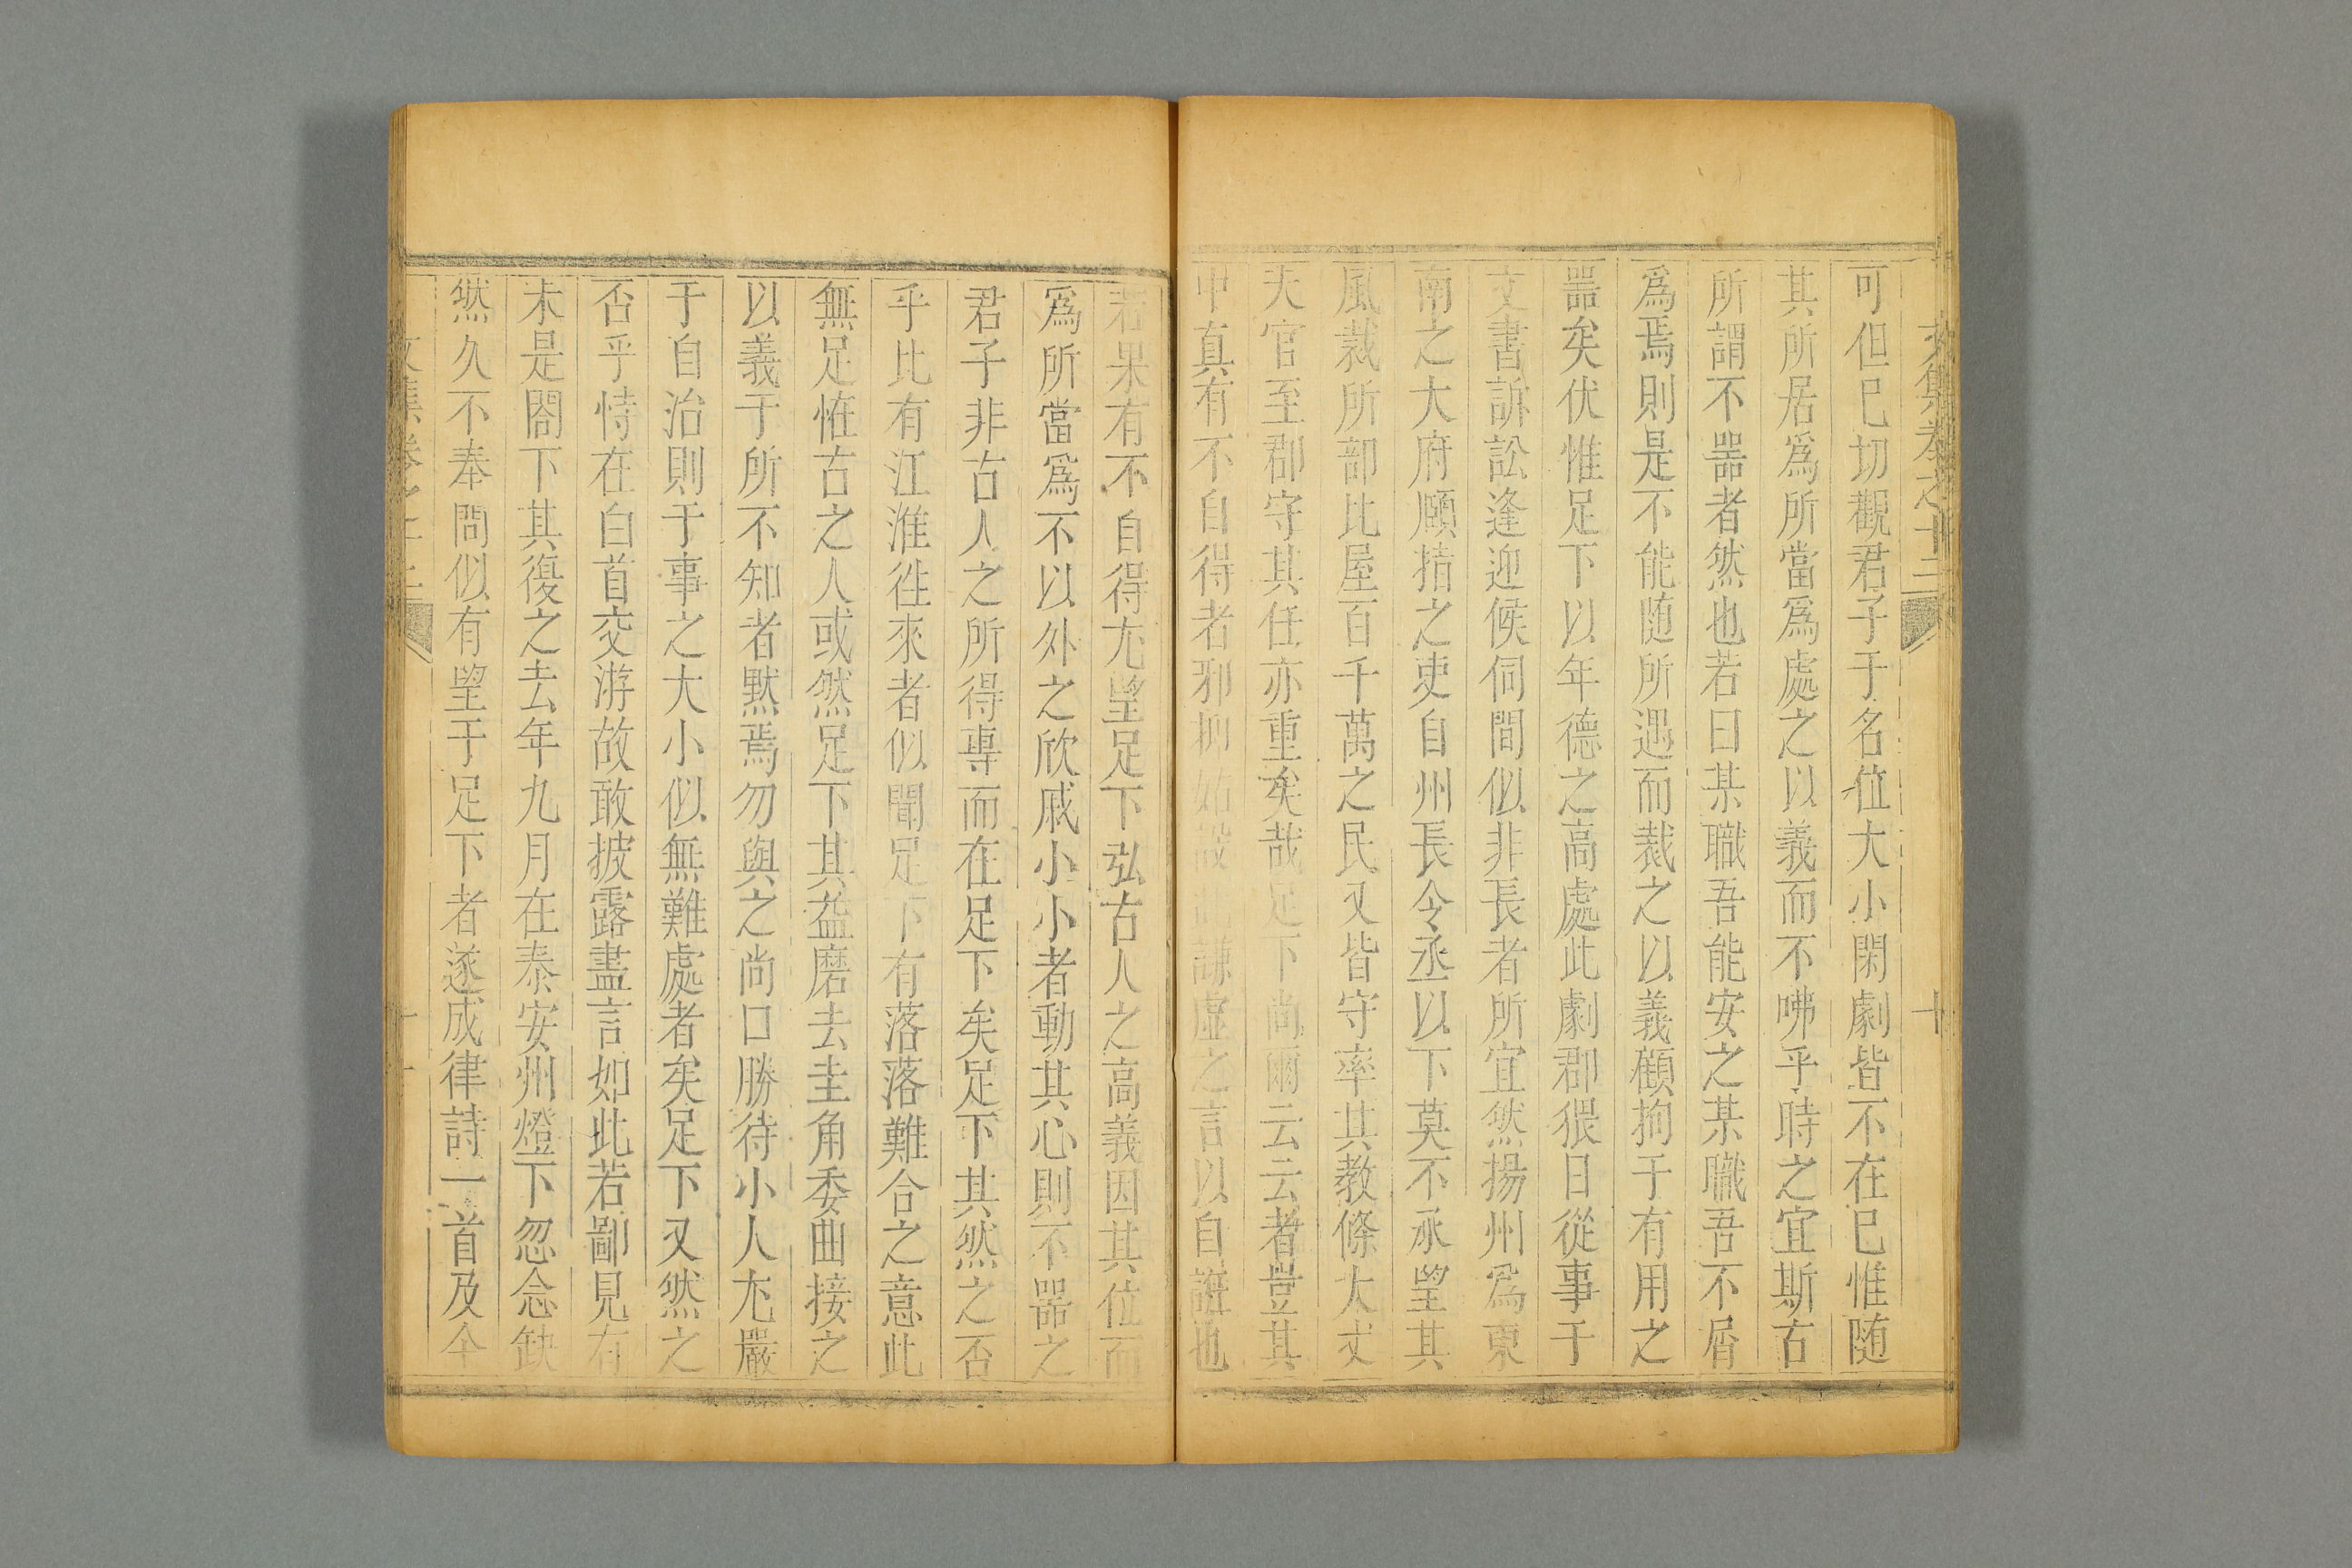 文集卷之十三
十
可但巳切觀君子于名位大小閑劇皆不在巳惟随
其所居爲所當爲處之以義而不咈乎時之宜斯古
所謂不器者然也若曰某職吾能安之某職吾不屑
爲焉則是不能随所遇而裁之以義顧拘于有用之
噐矣伏惟足下以年德之高處此劇郡猥日從事于
文書訴訟逢迎候伺間似非長者所宜然揚州爲東
南之大府頤指之吏自州長令丞以下莫不承望其
風裁所部比屋百千萬之民又皆守率其教條大丈
夫官至郡守其任亦重矣哉足下尚爾云云者豈其
中真有不自得者邪抑姑設謙虛之言以自誑也
若果有不自得尤望足下弘古人之高義因其位而
爲所當爲不以外之欣戚小小者動其心則不噐之
君子非古人之所得專而在足下矣足下其然之否
乎比有江淮徃來者似聞足下有落落難合之意此
無足恠古之人或然然足下其益磨去圭角委曲接之
以義于所不知者黙焉勿與之尚口勝待小人尤嚴
于自治則于事之大小似無難處者矣足下又然之
否乎恃在白首交游故敢披露盡言如此若鄙見有
未是閤下其復之去年九月在泰安州燈下忽念缺
然久不奉問似有望于足下者遂成律詩一首及今
文集卷之十三
十一